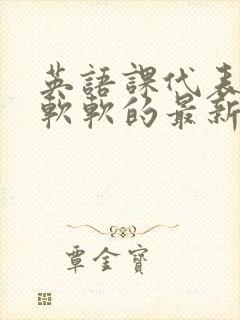 英語課代表
軟軟的最新
覃金寶